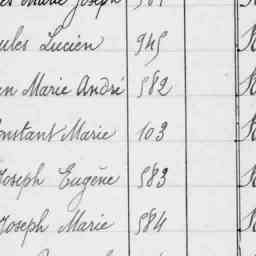 Marie Joseph
Lucien 945
Marie André 582
Constant Marie 103
Joseph Eugène 583
Joseph Marie 584